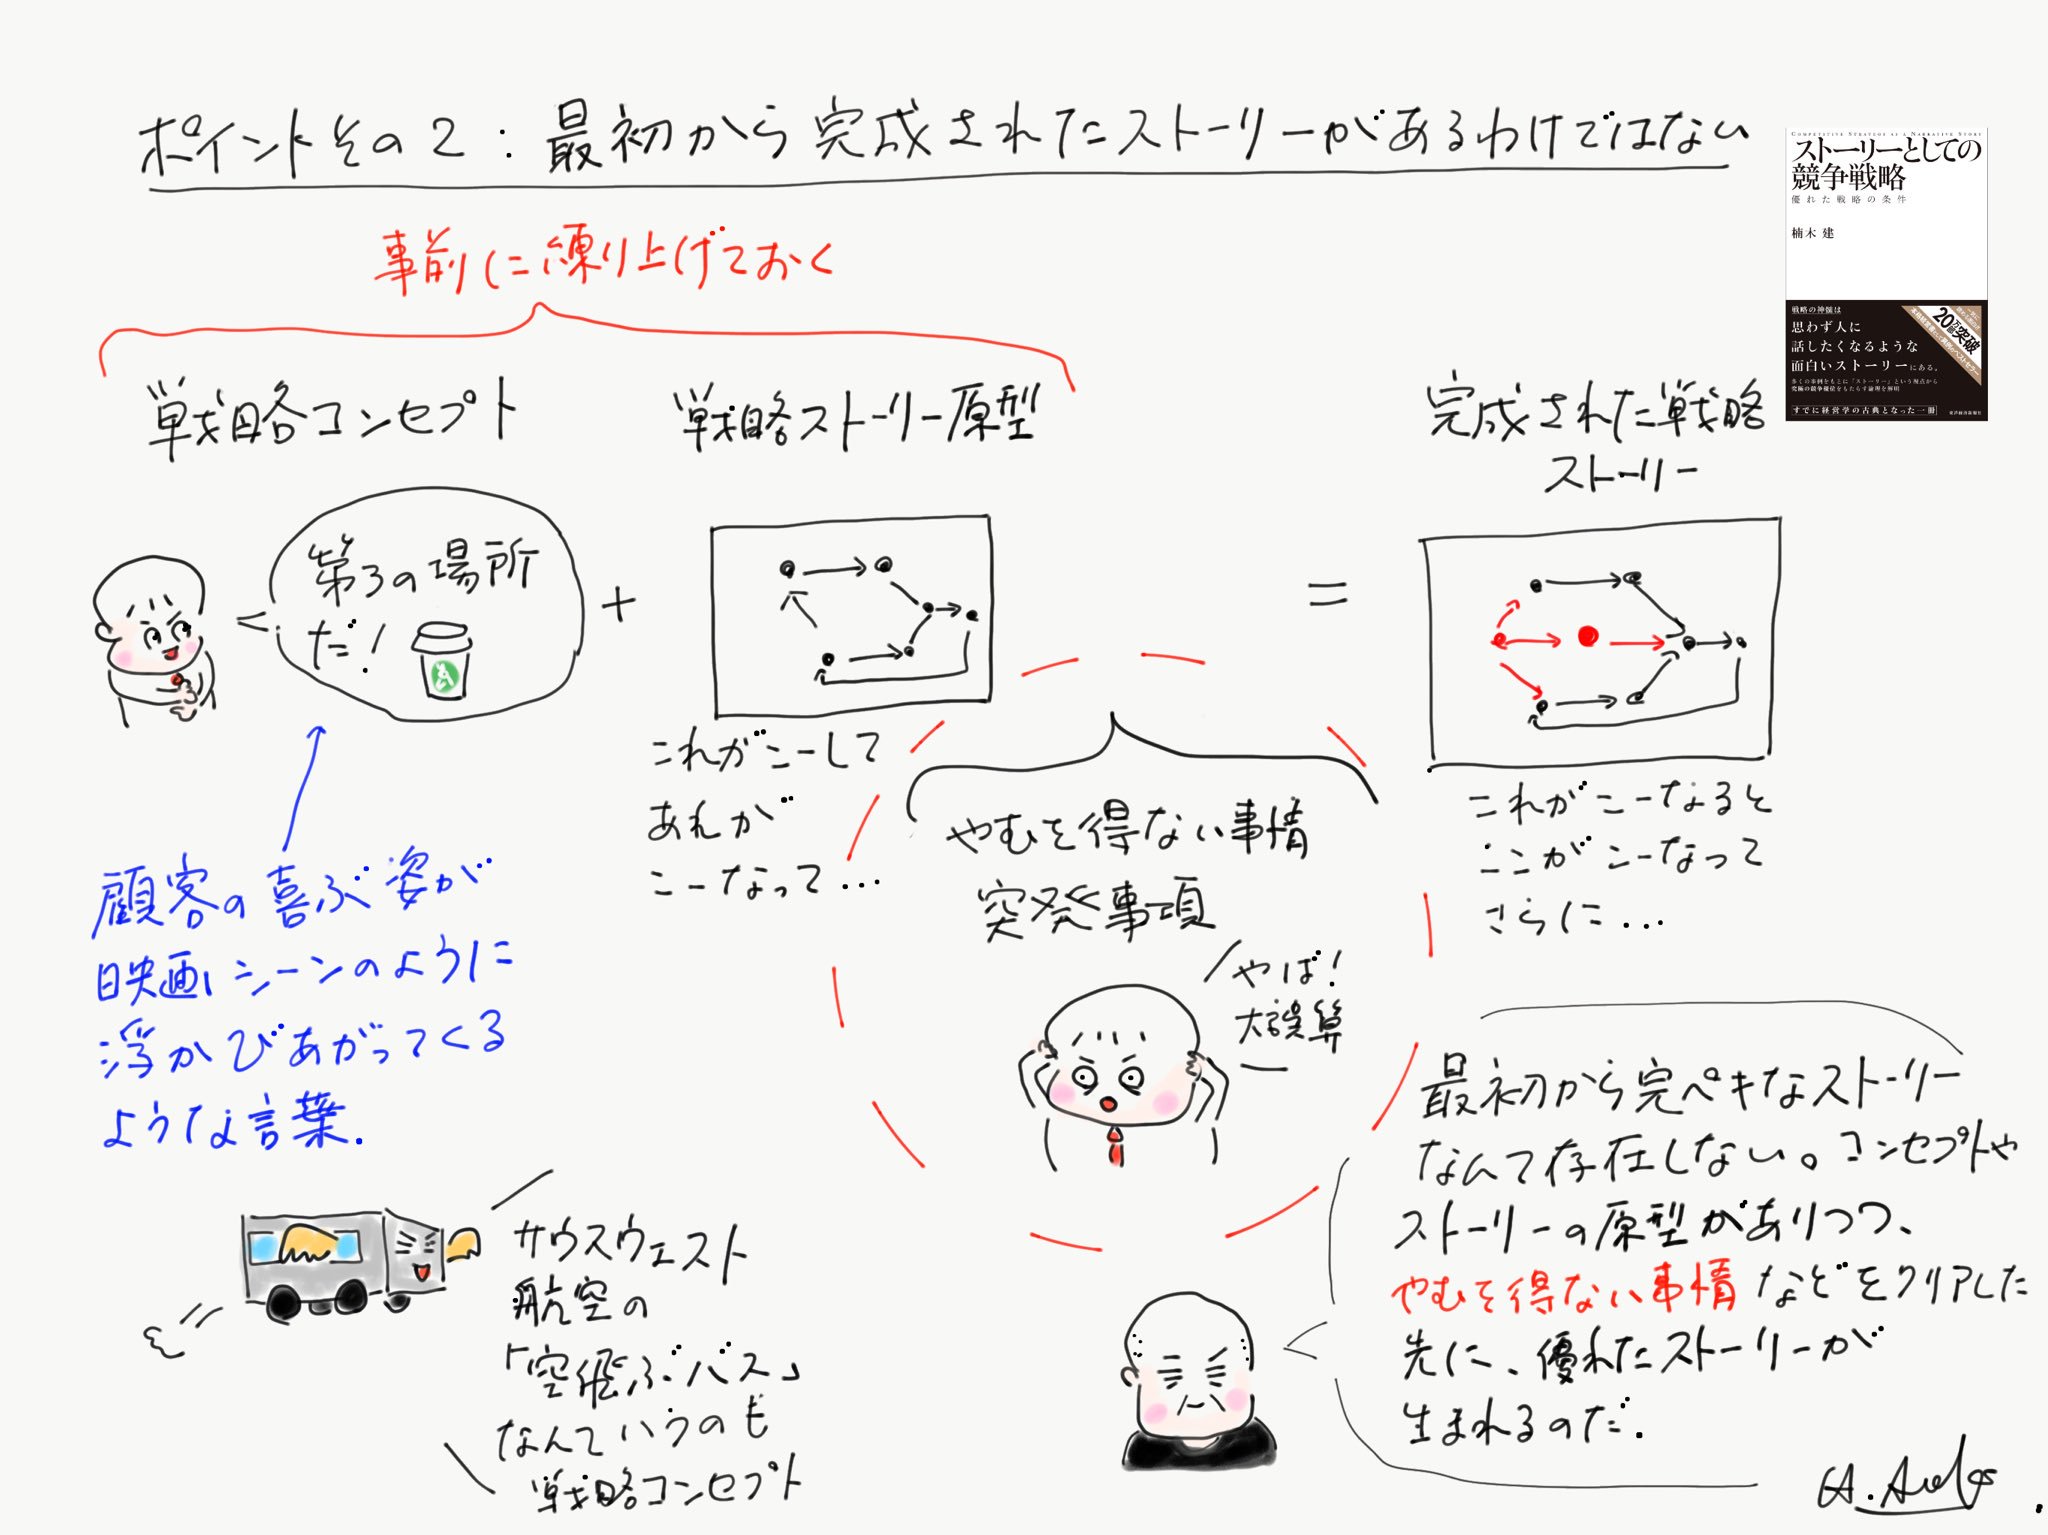 ポイントその2:最初から完成されたストーリーがあるわけではない
COMPETITIVE STRATEGY AS A NARRATIVE STORY
ストーリーとしての
競争戦略
優れた戦略の条件
楠木 建
戦略の神髄は
思わず人に
話したくなるような
面白いストーリーにある。
多くの事例をもとに「ストーリー」という視点から
究極の競争優位をもたらす論理を解明
すでに経営学の古典となった一冊
20万部突破
東洋経済新報社
事前に練り上げておく
戦略コンセプト
戦略ストーリー原型
完成された戦略
ストーリー
第3の場所
だ!
+
=
これがこーして
あれが
こーなって...
やむを得ない事情
突発事項
やば!
大誤算
これがこーなると
ここがこーなって
さらに...
顧客の喜ぶ姿が
映画シーンのように
浮かびあがってくる
ような言葉.
サウスウェスト
航空の
「空飛ぶバス」
なんていうのも
戦略コンセプト
最初から完ペキなストーリー
なんて存在しない。コンセプトや
ストーリーの原型がありつつ、
やむを得ない事情などをクリアした
先に、優れたストーリーが
生まれるのだ.